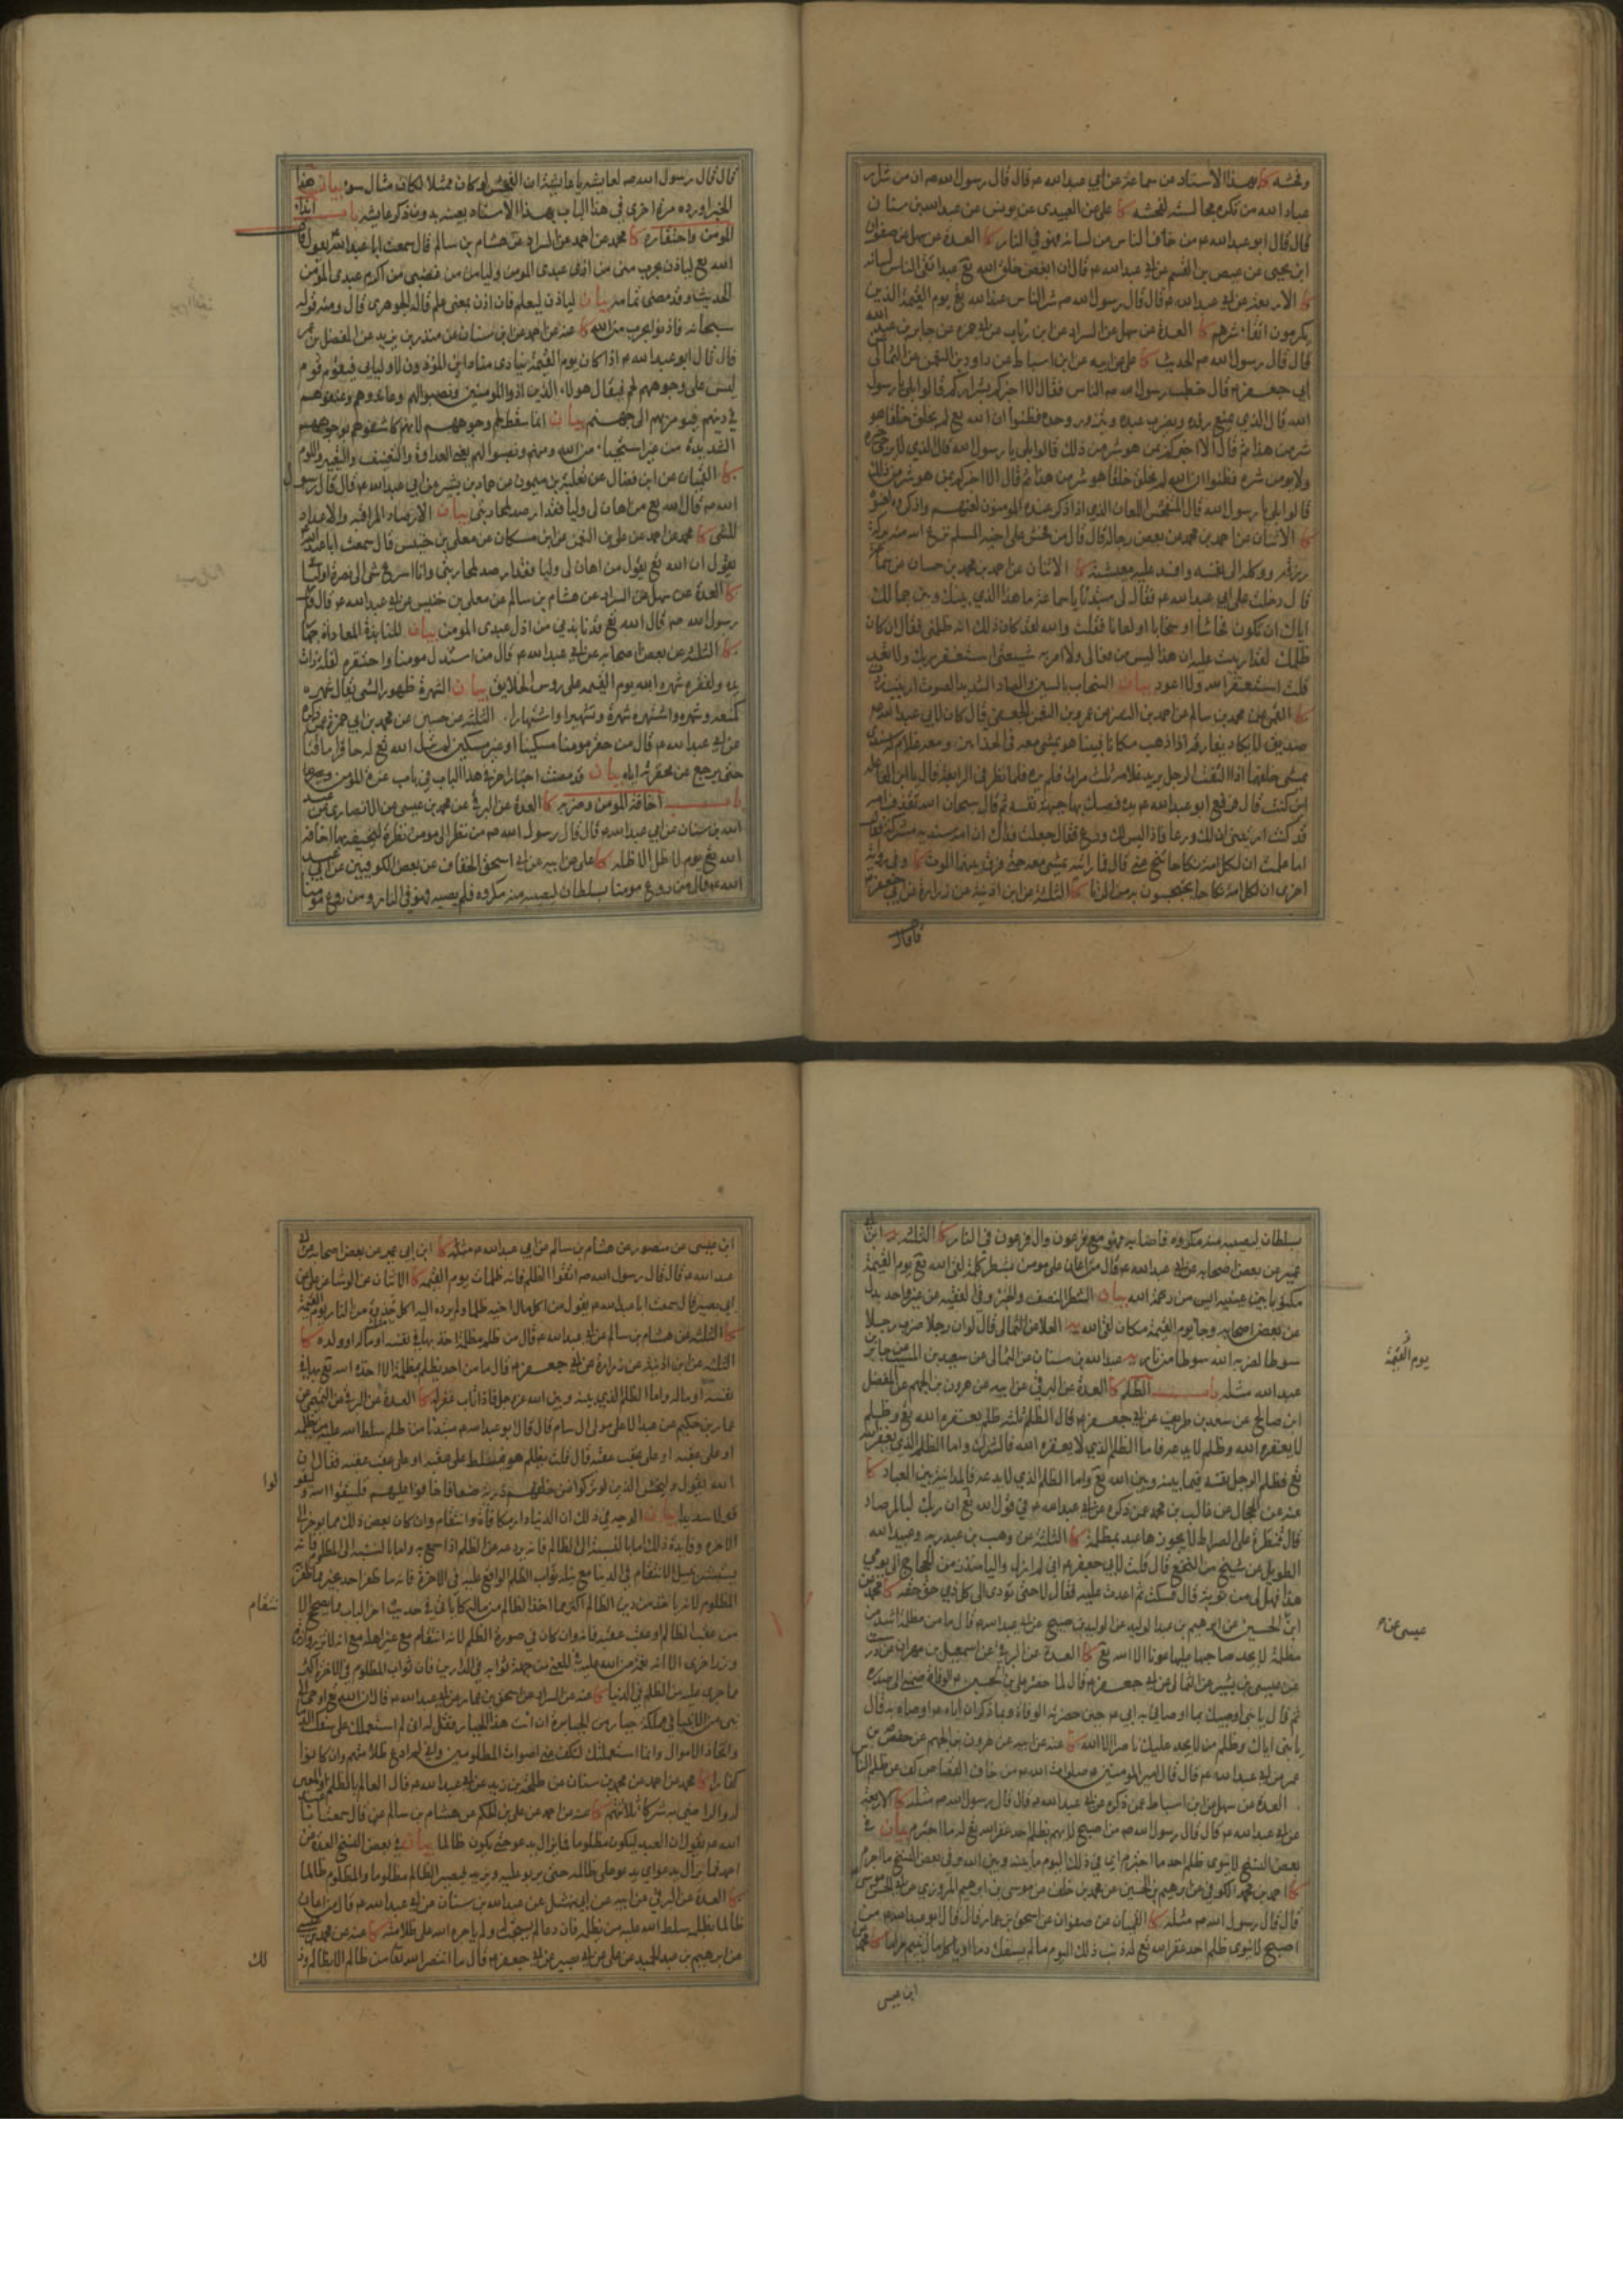 وفحشه كا بهذا الاسناد عن سماعة عن ابي عبدالله ع قال قال رسول الله ص ان من شرار
عباد الله من تكره مجالسته لفحشه كا علي عن العبيدي عن يونس عن عبدالله بن سنان
قال قال ابو عبدالله ع من خاف الناس من لسانه فهو في النار كا العدة عن سهل عن صفوان
ابن يحيى عن عيص بن القسم عن ابي عبدالله ع قال ان ابغض خلق الله تع عبد اتقى الناس لسانه
كا الاربعة عن ابي عبدالله ع قال قال رسول الله ص شر الناس عند الله تع يوم القيمة الذين
يكرمون اتقاء شرهم كا العدة عن سهل عن السراد عن ابن رئاب عن ابي حمزة عن جابر بن عبد الله
قال قال رسول الله ص الحديث كا علي عن ابيه عن ابن اسباط عن داود بن النعمن عن الثمالي عن
ابي جعفر ع قال خطب رسول الله ص الناس فقال الا اخبركم بشراركم قالوا بلى يا رسول
الله قال الذي يمنع رفده ويضرب عبده ويتزود وحده فظنوا ان الله تع لم يخلق خلقا هو
شر من هذا ثم قال الا اخبركم بمن هو شر من ذلك قالوا بلى يا رسول الله قال الذي لا يرجى خيره
ولا يومن شره فظنوا ان الله لم يخلق خلقا هو شر من هذا ثم قال الا اخبركم بمن هو شر من ذلك
قالوا بلى يا رسول الله قال المتفحش اللعان الذي اذا ذكر عنده المومنون لعنهم واذا ذكروه لعنوه
كا الاثنان عن احمد بن محمد عن بعض رجاله قال قال من فحش على اخيه المسلم نزع الله منه بركة
رزقه ووكله الى نفسه وافسد عليه معيشته كا الاثنان عن احمد بن محمد بن حسان عن سماعة
قال دخلت على ابي عبدالله ع فقال لي مبتدئا يا سماعة ما هذا الذي بينك وبين جمالك
اياك ان تكون فحاشا او سخابا او لعانا فقلت والله لقد كان ذلك انه ظلمني فقال ان كان
ظلمك لقد اربيت عليه ان هذا ليس من فعالي ولا امر به شيعتي استغفر ربك ولا تعد
قلت استغفر الله ولا اعود بيان السخاب بالسين والصاد الشديد الصوت
صديق لا يكاد يفارقه اذا ذهب مكانا فبينا هو يمشي معه في الحذائين ومعه غلام له سندي
يمشي خلفهما اذا التفت الرجل يريد غلامه ثلث مرات فلم يره فلما نظر في الرابعة قال يا ابن الفاعلة
اين كنت قال فرفع ابو عبدالله ع يده فصك بها جبهة نفسه ثم قال سبحان الله تقذف امه
قد كنت ارى ان لك ورعا فاذا ليس لك ورع فقال جعلت فداك ان امه سندية مشركة فقال
اما علمت ان لكل امة نكاحا تنح عني قال فما رايته يمشي معه حتى فرق بينهما الموت كا وفي رواية
اخرى ان لكل امة نكاحا يحتجبون به من الزنا كا الثلثة عن ابن اذينة عن زرارة عن ابي جعفر ع
قال قال
قال قال رسول الله ص لعايشة يا عايشة ان الفحش لو كان ممثلا لكان مثال سوء بيان هذا
الخبر اورده مرة اخرى في هذا الباب بهذا الاسناد بعينه بدون ذكر عايشة باب اذاء
المومن واحتقاره كا محمد عن احمد عن السراد عن هشام بن سالم قال سمعت ابا عبدالله ع يقول قال
الله تع لياذن بحرب مني من اذى عبدي المومن وليامن من غضبي من اكرم عبدي المومن
الحديث وقد مضى تمامه بيان لياذن ليعلم فان اذن بمعنى علم قاله الجوهري قال ومنه قوله
سبحانه فاذنوا بحرب من الله كا عنه عن احمد عن ابن سنان عن منذر بن يزيد عن المفضل بن عمر
قال قال ابو عبدالله ع اذا كان يوم القيمة ينادى مناد اين المؤذون لاوليائي فيقوم قوم
ليس على وجوههم لحم فيقال هولاء الذين اذوا المومنين ونصبوا لهم وعاندوهم وعنفوهم
في دينهم فيومر بهم الى جهنم بيان انما سقط لحم وجوههم لانهم كاشفوهم بوجوههم
الشديدة من غير استحياء من الله ومنهم ونصبوا لهم يعني العداوة والتعنيف والتعيير واللوم
كا القميان عن ابن فضال عن ثعلبة بن ميمون عن حماد بن بشير عن ابي عبدالله ع قال قال رسول
الله ص قال الله تع من اهان لي وليا فقد ارصد لمحاربتي بيان الارصاد المراقبة والاعداد
للشي كا محمد عن احمد عن علي بن النعمن عن ابن مسكان عن معلى بن خنيس قال سمعت ابا عبدالله
يقول ان الله تع يقول من اهان لي وليا فقد ارصد لمحاربتي وانا اسرع شي الى نصرة اوليائي
كا العدة عن سهل عن السراد عن هشام بن سالم عن معلى بن خنيس عن ابي عبدالله ع قال قال
رسول الله ص قال الله تع قد نابذني من اذل عبدي المومن بيان المنابذة المعاداة جهارا
كا الثلثة عن بعض اصحابه عن ابي عبدالله ع قال من استذل مومنا واحتقره لقلة ذات
يده ولفقره شهره الله يوم القيمة على روس الخلايق بيان الشهرة ظهور الشي يقال شهره
كمنعه وشهره واشتهره شهرة وتشهيرا واشتهارا الثلثة عن حسين عن محمد بن ابي حمزة عمن ذكره
عن ابي عبدالله ع قال من حقر مومنا مسكينا او غير مسكين لم يزل الله تع له حاقرا ماقتا
حتى يرجع عن محقرته اياه بيان قد مضت اخبار اخر في هذا الباب في باب عزة المومن
باب اخافة المومن وضربه كا العدة عن البرقي عن محمد بن عيسى عن الانصاري عن عبد
الله بن سنان عن ابي عبدالله ع قال قال رسول الله ص من نظر الى مومن نظرة ليخيفه بها اخافه
الله تع يوم لا ظل الا ظله كا علي عن ابيه عن ابي اسحق الخفاف عن بعض الكوفيين عن ابي عبد
الله ع قال من روع مومنا بسلطان ليصيبه منه مكروه فلم يصبه فهو في النار ومن روع مومنا
بسلطان ليصيبه منه مكروه فاصابه فهو مع فرعون وال فرعون في النار كا الثلثة ابن ابي
عمير عن بعض اصحابه عن ابي عبدالله ع قال من اعان على مومن بشطر كلمة لقي الله تع يوم القيمة
مكتوبا بين عينيه ايس من رحمة الله بيان الشطر النصف والجزء وفي الفقيه عن غير واحد بدل
عن بعض اصحابه وجاء يوم القيمة مكان لقي الله يه العلا عن الثمالي قال لو ان رجلا ضرب رجلا
سوطا لضربه الله سوطا من نار يه عبدالله بن سنان عن الثمالي عن سعيد بن المسيب عن جابر بن
عبدالله مثله باب الظلم كا العدة عن البرقي عن ابيه عن هرون بن الجهم عن المفضل
ابن صالح عن سعد بن طريف عن ابي جعفر ع قال الظلم ثلثة ظلم يغفره الله تع وظلم
لا يغفره الله وظلم لا يدعه فاما الظلم الذي لا يغفره الله فالشرك واما الظلم الذي يغفره الله
تع فظلم الرجل نفسه فيما بينه وبين الله تع واما الظلم الذي لا يدعه فالمداينة بين العباد كا
عنه عن الحجال عن غالب بن محمد عمن ذكره عن ابي عبدالله ع في قول الله تع ان ربك لبالمرصاد
قال قنطرة على الصراط لا يجوزها عبد بمظلمة كا الثلثة عن وهب بن عبد ربه وعبيد الله
الطويل عن شيخ من النخع قال قلت لابي جعفر ع اني لم ازل واليا منذ زمن الحجاج الى يومي
هذا فهل لي من توبة قال فسكت ثم اعدت عليه فقال لا حتى تودي الى كل ذي حق حقه كا محمد عن
ابن الحسين عن ابرهيم بن عبد الحميد عن الوليد بن صبيح عن ابي عبدالله ع قال ما من مظلمة اشد من
مظلمة لا يجد صاحبها عليها عونا الا الله تع كا العدة عن البرقي عن اسمعيل بن مهران عن درست
عن عيسى بن بشير عن الثمالي عن ابي جعفر ع قال لما حضر علي بن الحسين ع الوفاة ضمني الى صدره
ثم قال يا بني اوصيك بما اوصاني به ابي ع حين حضرته الوفاة وبما ذكر ان اباه ع اوصاه به قال
يا بني اياك وظلم من لا يجد عليك ناصرا الا الله كا عنه عن ابيه عن هرون بن الجهم عن حفص بن
عمر عن ابي عبدالله ع قال قال امير المومنين صلوات الله ع من خاف القصاص كف عن ظلم الناس
العدة عن سهل عن ابن اسباط عمن ذكره عن ابي عبدالله ع قال قال رسول الله ص مثله كا الاربعة
عن ابي عبدالله ع قال قال رسول الله ص من اصبح لا يهم بظلم احد غفر الله تع له ما اجترم بيان في
بعض النسخ لا ينوي ظلم احد ما اجترم اي في ذلك اليوم ما بينه وبين الله وفي بعض النسخ ما اجرم
كا احمد بن محمد الكوفي عن ابرهيم بن الحسين عن محمد بن خلف عن موسى بن ابرهيم المروزي عن ابي الحسن موسى ع
قال قال رسول الله ص مثله كا القميان عن صفوان عن اسحق بن عمار قال قال ابو عبدالله ع من
اصبح لا ينوي ظلم احد غفر الله تع له ذنب ذلك اليوم ما لم يسفك دما او ياكل مال يتيم حراما كا محمد عن
يوم القيمة
عيسى عن
ابن عيسى
ابن عيسى عن منصور عن هشام بن سالم عن ابي عبدالله ع مثله كا ابن ابي عمير عن بعض اصحابه عن ابي
عبدالله ع قال قال رسول الله ص اتقوا الظلم فانه ظلمات يوم القيمة كا الاثنان عن الوشا عن علي عن
ابي بصير قال سمعت ابا عبدالله ع يقول من اكل مال اخيه ظلما ولم يرده اليه اكل جذوة من النار يوم القيمة
كا الثلثة عن هشام بن سالم عن ابي عبدالله ع قال من ظلم مظلمة اخذ بها في نفسه او ماله او ولده كا
الثلثة عن ابن اذينة عن زرارة عن ابي جعفر ع قال ما من احد يظلم بمظلمة الا اخذه الله تع بها في
نفسه او ماله واما الظلم الذي بينه وبين الله عز وجل فاذا تاب غفر له كا العدة عن البرقي عن التميمي عن
عمار بن حكيم عن عبد الاعلى مولى ال سام قال قال ابو عبدالله ع مبتدئا من ظلم سلط الله عليه من يظلمه
او على عقبه او على عقب عقبه قال قلت يظلم هو فيسلط على عقبه او على عقب عقبه فقال ان
الله يقول وليخش الذين لو تركوا من خلفهم ذرية ضعافا خافوا عليهم فليتقوا الله وليقولوا
قولا سديدا بيان الوجه في ذلك ان الدنيا دار مكافاة وانتقام وان كان بعض ذلك مما يوخر الى
الاخرة وفايدة ذلك اما بالنسبة الى الظالم فانه يردعه عن الظلم اذا سمع به واما بالنسبة الى المظلوم فانه
يستبشر بنيل الانتقام في الدنيا مع نيله ثواب الظلم الواقع عليه في الاخرة فانه ما ظفر احد بخير مما ظفر به
المظلوم لانه ياخذ من دين الظالم اكثر مما اخذ الظالم من ماله كما ياتي في حديث اخر الباب
من عقب الظالم او عقب عقبه فانه وان كان في صورة الظلم لانه انتقام من غير اهله مع انه لا تزر وازرة
وزر اخرى الا انه نعمة من الله عليه في المعنى من جهة ثوابه في الدارين فان ثواب المظلوم في الاخرة اكثر
مما جرى عليه من الظلم في الدنيا كا عنه عن السراد عن اسحق بن عمار عن ابي عبدالله ع قال ان الله تع اوحى الى
نبي من الانبيا في مملكة جبار من الجبابرة ان ائت هذا الجبار فقل له اني لم استعملك على سفك الدماء
واتخاذ الاموال وانما استعملتك لتكف عني اصوات المظلومين واني لم ادع ظلامتهم وان كانوا
كفارا كا محمد عن احمد عن محمد بن سنان عن طلحة بن زيد عن ابي عبدالله ع قال العامل بالظلم والمعين
له والراضي به شركاء ثلاثتهم كا عنه عن احمد عن علي بن الحكم عن هشام بن سالم عن قال سمعت ابا عبد
الله ع يقول ان العبد ليكون مظلوما فما يزال يدعو حتى يكون ظالما بيان في بعض النسخ العدة عن
احمد فما يزال يدعو اي يدعو على ظالمه حتى يربو عليه ويزيد فيصير الظالم مظلوما والمظلوم ظالما
كا العدة عن البرقي عن ابيه عن ابي نهشل عن عبدالله بن سنان عن ابي عبدالله ع قال من اعان
ظالما بظلمه سلط الله عليه من يظلمه فان دعا لم يستجب له ولم ياجره الله على ظلامته كا عنه عن محمد بن عيسى
عن ابرهيم بن عبد الحميد عن علي عن ابي بصير عن ابي جعفر ع قال ما انتصر الله تع من ظالم الا بظالم وذ
لوا
نتقام
لك